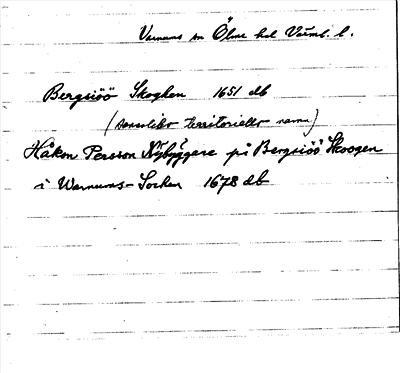 Varnums sn Ölme hd Värml. l.
Bergsiöö Skoghen 1651 db
(sannolikt territoriellt namn)
Håkon Persson Nybyggare på Bergsiöö Skoogen
i Warnums-Socken 1678 db